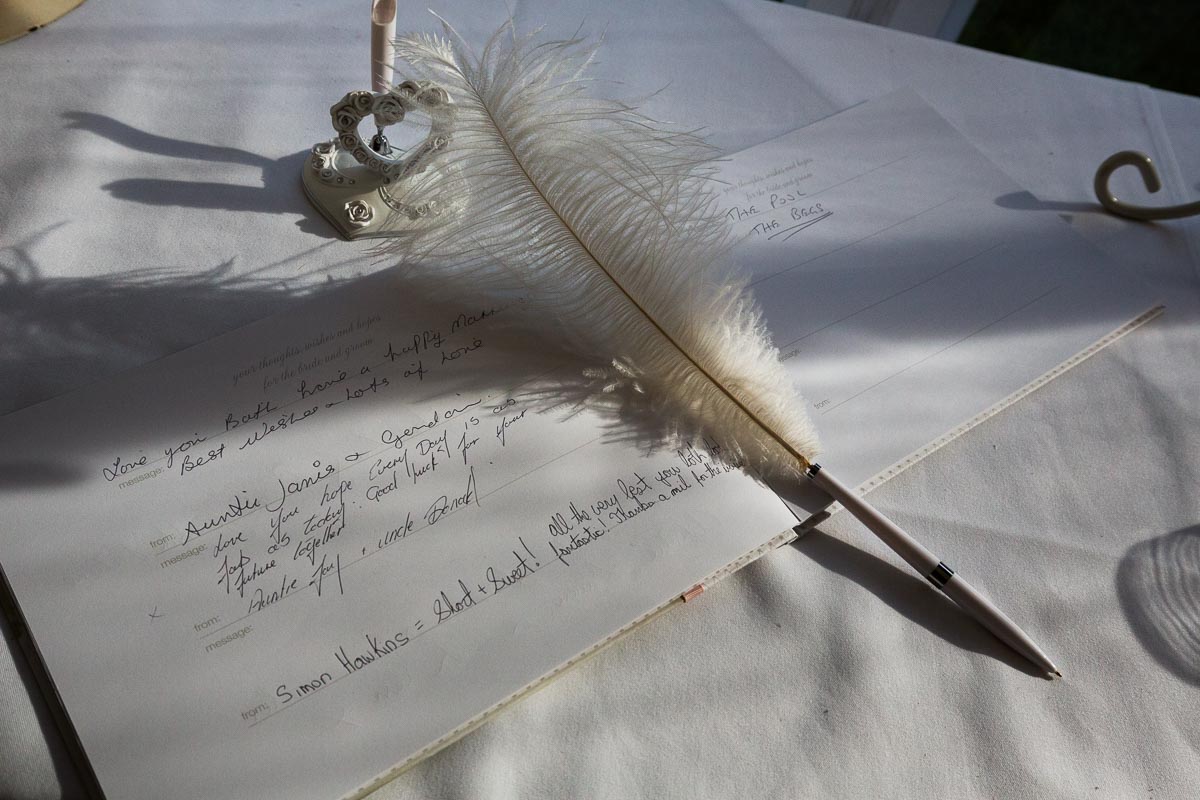 your thoughts, wishes and hopes
for the bride and groom
Love you Both have a happy
Best Wishes & Lots of Love
message:
from: Auntie Janis &
message: Love you hope Every Day is as
fab as today. Good luck for your
future together
from: Auntie Jay + uncle
message: all the very best you both
fantastic! Thanks a mil for the
from: Simon Hawkins = Short + Sweet!
your thoughts, wishes and hopes
for the bride and groom
THE
THE
message:
from: